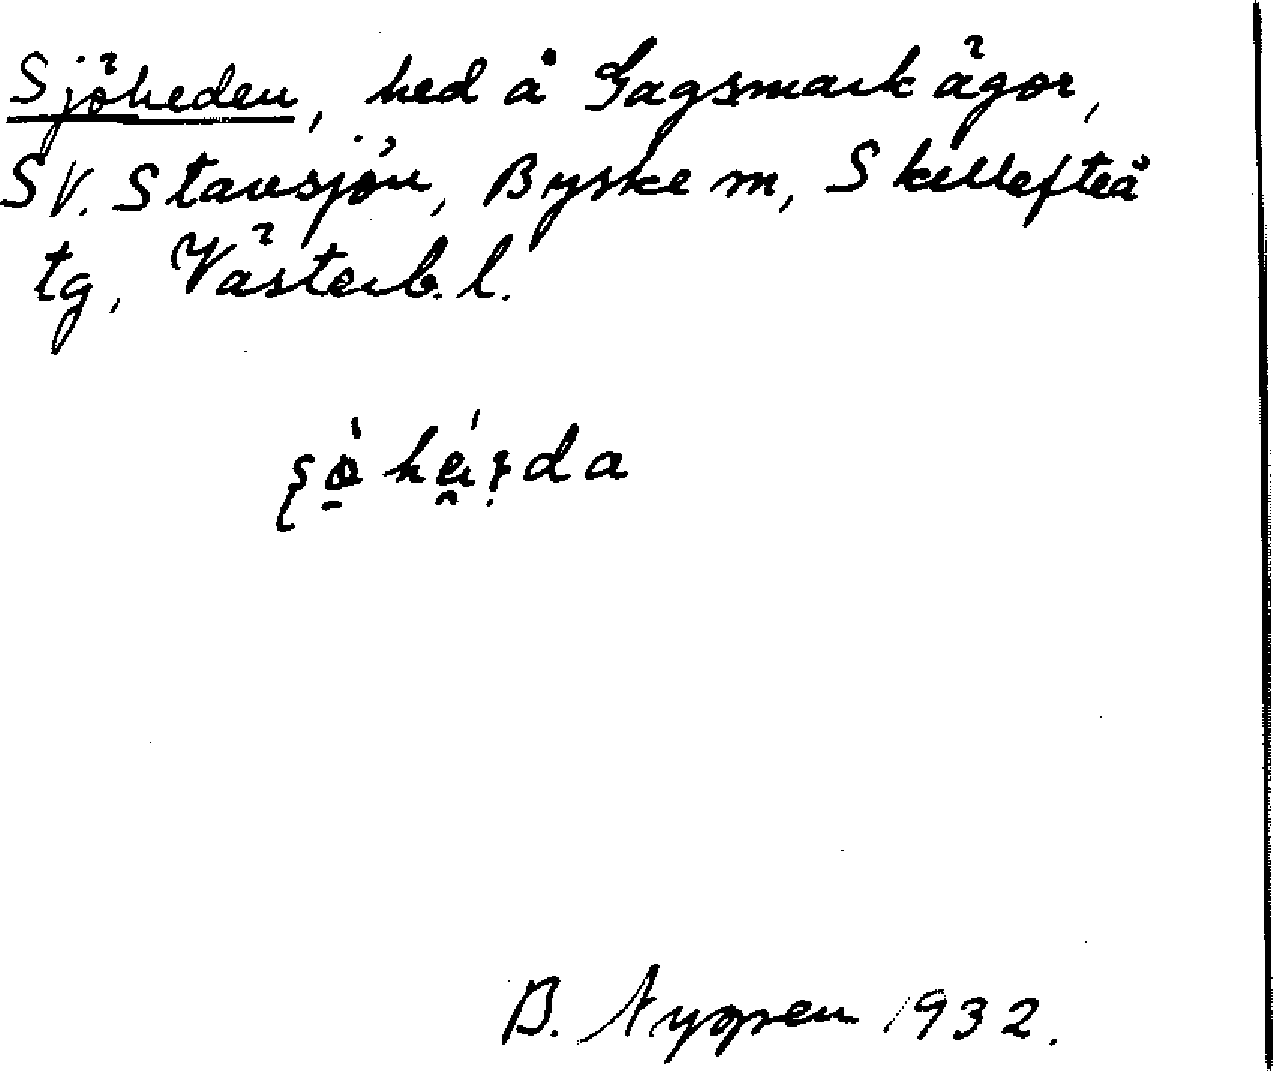 Sjöheden, hed å Gagsmark ägor,
SV. Stavsjön, Byske sn, Skellefteå
tg, Västerb. l.
B. Nygren 1932.